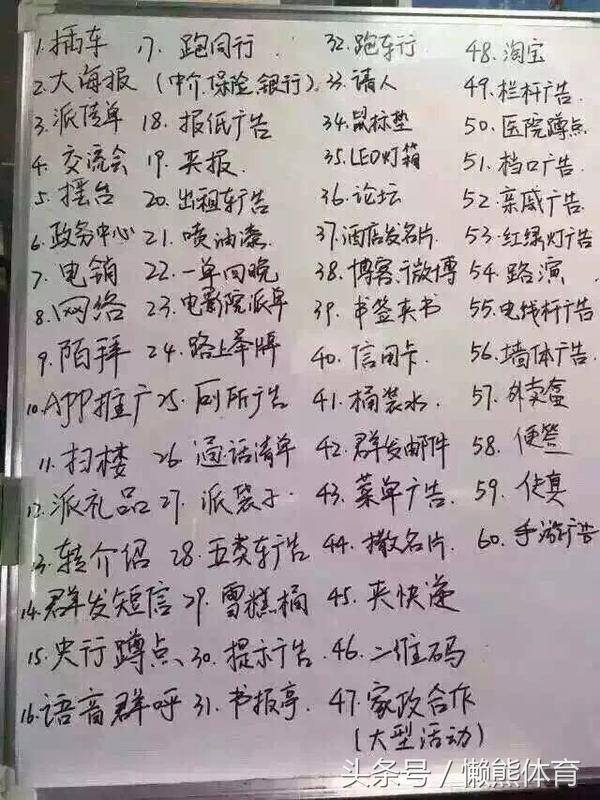 1.插车
2.大海报
3.派传单
4.交流会
5.摆台
6.政务中心
7.电销
8.网络
9.陌拜
10.APP推广
11.扫楼
12.派礼品
13.转介绍
14.群发短信
15.央行蹲点
16.语音群呼
17.跑同行
(中介.保险.银行)
18.报低广告
19.夹报
20.出租车广告
21.喷油漆
22.一单
23.电影院派单
24.路上举牌
25.厕所广告
26.通话清单
27.派袋子
28.五类车广告
29.雪糕桶
30.提示广告
31.书报亭
32.跑车行
33.请人
34.鼠标垫
35.LED灯箱
36.论坛
37.酒店发名片
38.博客.微博
39.书签夹书
40.信用卡
41.桶装水
42.群发邮件
43.菜单广告
44.撒名片
45.夹快递
46.二维码
47.家政合作
(大型活动)
48.淘宝
49.栏杆广告
50.医院蹲点
51.档口广告
52.亲戚广告
53.红绿灯广告
54.路演
55.电线杆广告
56.墙体广告
57.外卖盒
58.便签
59.传真
60.手游广告
头条号/懒熊体育